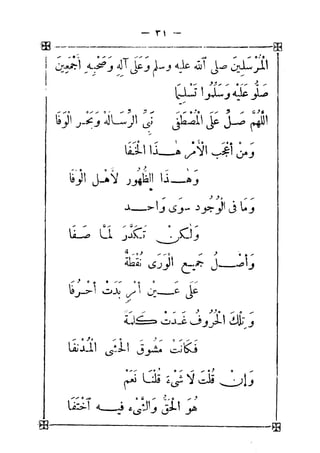 — ٣١ —
المرسلين صلى الله عليه وسلم آله وعلى آله وصحبه أجمعين
صلوا عليه وسلموا تسليما
اللهم صل على المصطفى نبي الرسالة وبحر الوفا
ومن أعجب الأمر هذا الخفا
وهذا الظهور لأهل الوفا
وما في الوجود سوى واحد
ولكن تكدر لما صفا
وأصل جميع الورى نقطة
على عين أمر بدت أحرفا
وتلك الحروف غدت كلمة
فكانت مشوق الحشى المدنفا
وإن قلت لا شيء قلنا نعم
هو الحق والشيء فيه اختفا